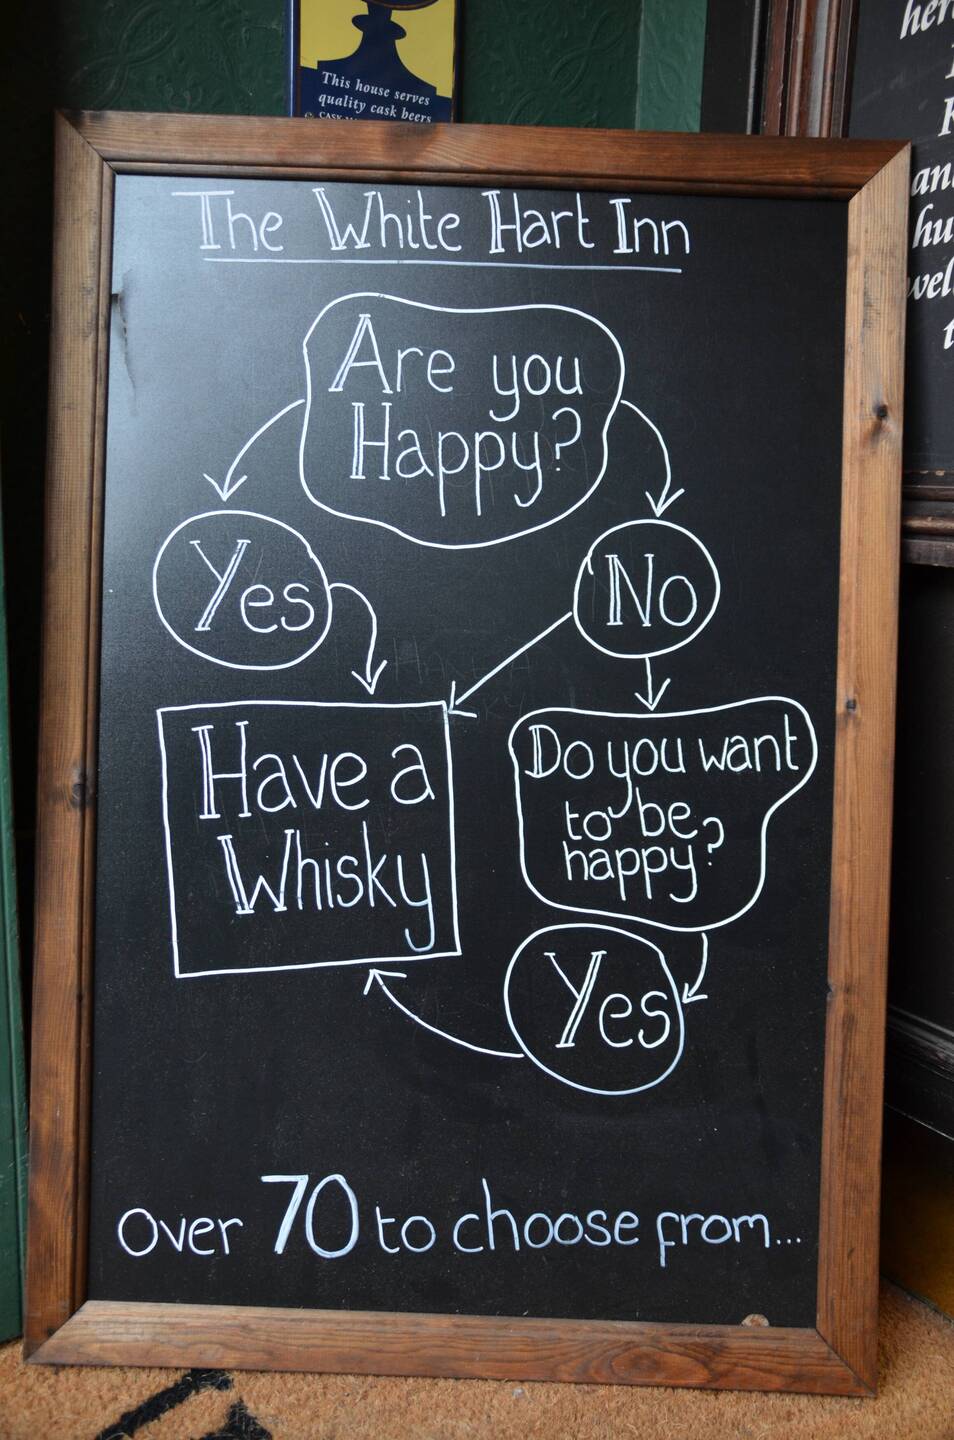 This house serves
quality cask beers
The White Hart Inn
Are you
Happy?
Yes
No
Have a
Whisky
Do you want
to be
happy?
Yes
Over 70 to choose from...